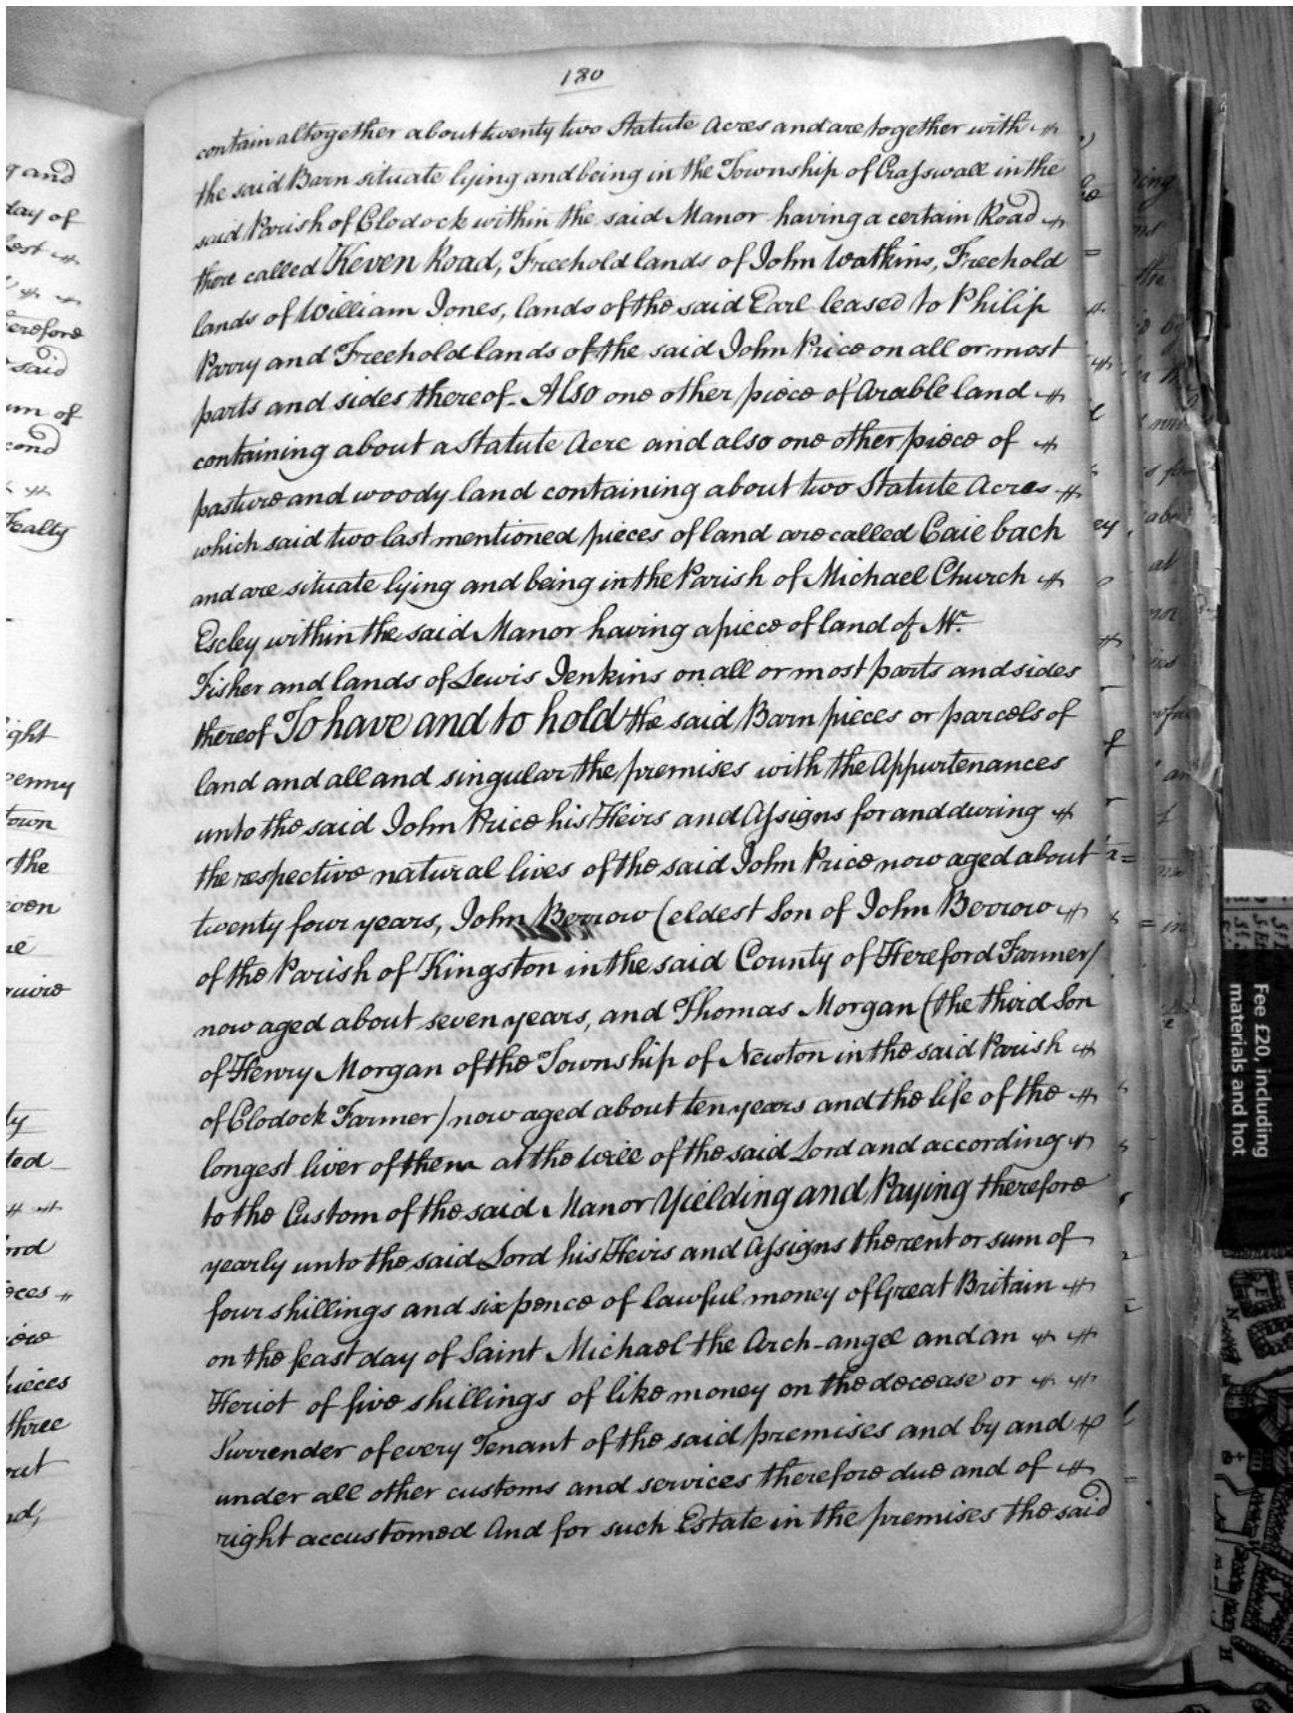 180
contain altogether about twenty two Statute Acres and are together with
the said Barn situate lying and being in the Township of Crasswall in the
said Parish of Clodock within the said Manor having a certain Road
there called Keven Road, Freehold lands of John Watkins, Freehold
lands of William Jones, lands of the said Earl leased to Philip
Parry and Freehold lands of the said John Price on all or most
parts and sides thereof. Also one other piece of Arable land
containing about a Statute Acre and also one other piece of
pasture and woody land containing about two Statute Acres
which said two last mentioned pieces of land are called Caie bach
and are situate lying and being in the Parish of Michael Church
Escley within the said Manor having a piece of land of Mr.
Fisher and lands of Lewis Jenkins on all or most parts and sides
thereof To have and to hold the said Barn pieces or parcels of
land and all and singular the premises with the Appurtenances
unto the said John Price his Heirs and Assigns for and during
the respective natural lives of the said John Price now aged about
twenty four years, John Berrow (eldest Son of John Berrow
of the Parish of Kingston in the said County of Hereford Farmer/
now aged about seven years, and Thomas Morgan (the third Son
of Henry Morgan of the Township of Newton in the said Parish
of Clodock Farmer/ now aged about ten years and the life of the
longest liver of them at the Will of the said Lord and according
to the Custom of the said Manor Yielding and Paying therefore
yearly unto the said Lord his Heirs and Assigns the rent or sum of
four shillings and sixpence of lawful money of Great Britain
on the feast day of Saint Michael the Arch-angel and an
Heriot of five shillings of like money on the decease or
Surrender of every Tenant of the said premises and by and
under all other customs and services therefore due and of
right accustomed And for such Estate in the premises the said
g and
day of
said
um of
cond
Fealty
ight
penny
town
the
ord
pieces
three
Fee £20, including
materials and hot